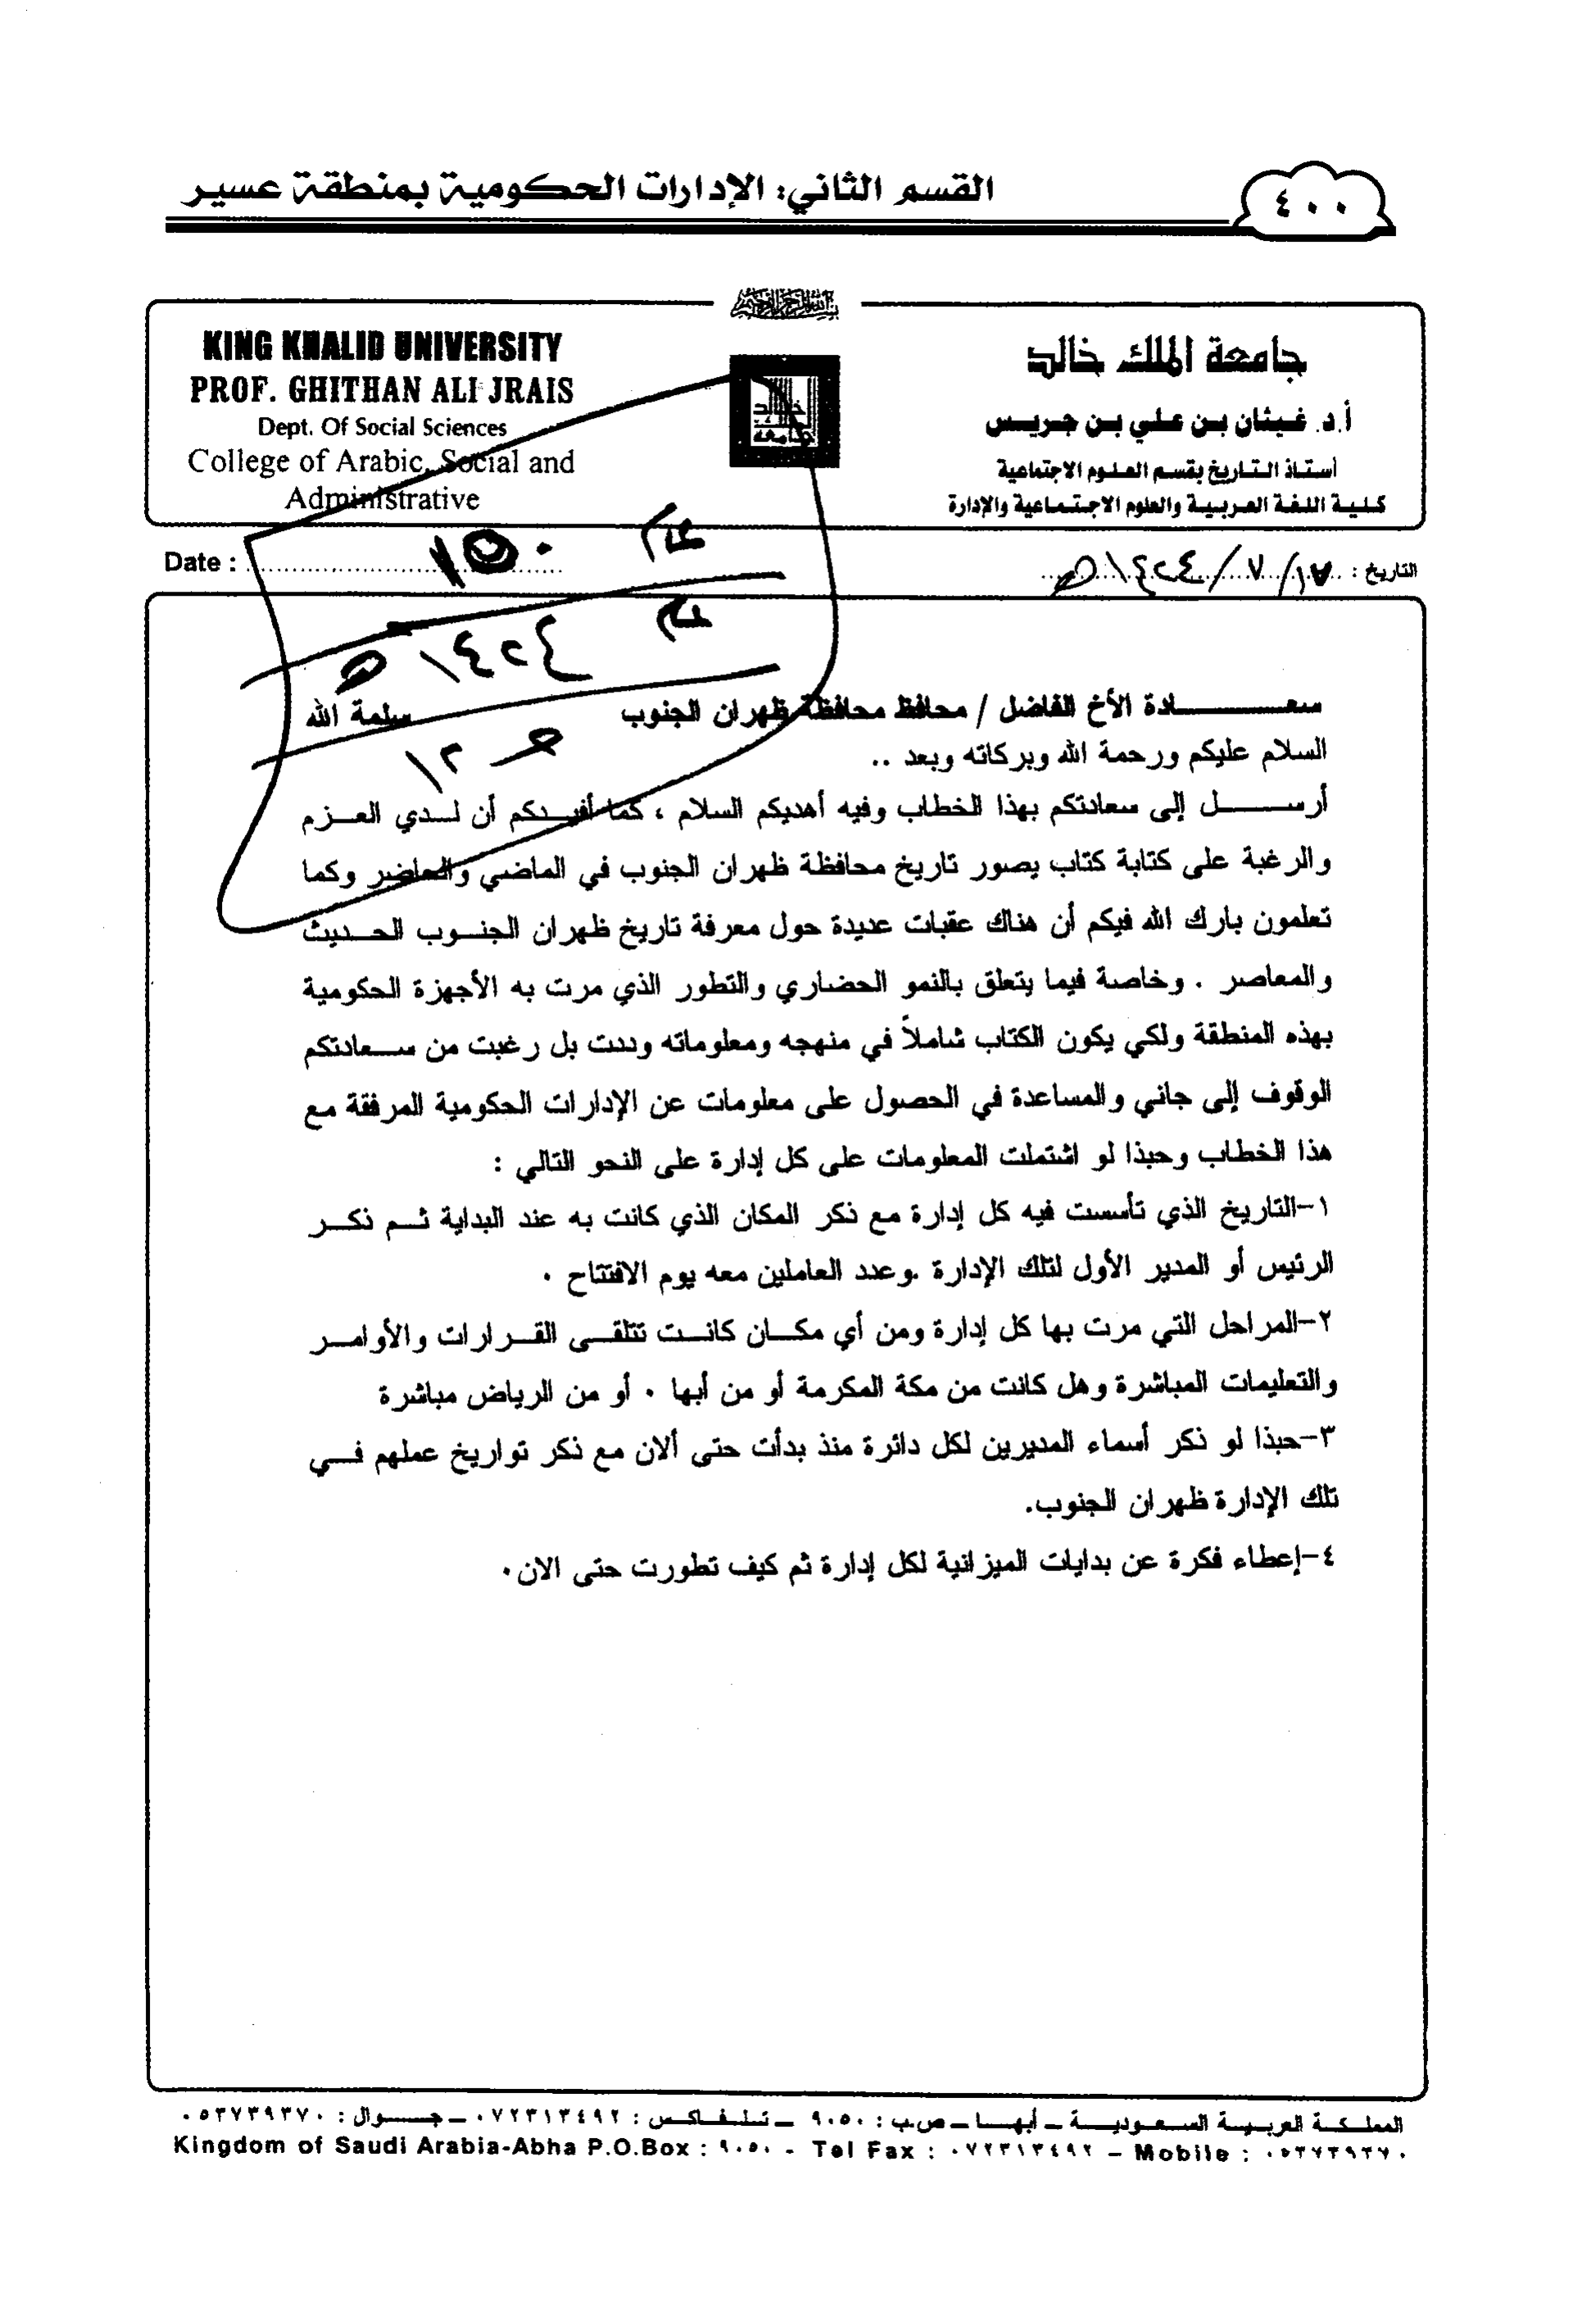 القسم الثاني: الإدارات الحكومية بمنطقة عسير
٤٠٠
بسم الله الرحمن الرحيم
KING KHALID UNIVERSITY
PROF. GHITHAN ALI JRAIS
Dept. Of Social Sciences
College of Arabic, Social and
Administrative
جامعة الملك خالد
أ.د. غيثان بن علي بن جريس
أستاذ التاريخ بقسم العلوم الاجتماعية
كلية اللغة العربية والعلوم الاجتماعية والإدارة
Date :
التاريخ : ١٧/٧/١٤٢٤هـ
١٤٢٤هـ
سعادة الأخ الفاضل / محافظ محافظة ظهران الجنوب سلمة الله
السلام عليكم ورحمة الله وبركاته وبعد ..
أرسل إلى سعادتكم بهذا الخطاب وفيه أهديكم السلام ، كما أفيدكم أن لدي العزم
والرغبة على كتابة كتاب يصور تاريخ محافظة ظهران الجنوب في الماضي والحاضر وكما
تعلمون بارك الله فيكم أن هناك عقبات عديدة حول معرفة تاريخ ظهران الجنوب الحديث
والمعاصر . وخاصة فيما يتعلق بالنمو الحضاري والتطور الذي مرت به الأجهزة الحكومية
بهذه المنطقة ولكي يكون الكتاب شاملاً في منهجه ومعلوماته وددت بل رغبت من سعادتكم
الوقوف إلى جاني والمساعدة في الحصول على معلومات عن الإدارات الحكومية المرفقة مع
هذا الخطاب وحبذا لو اشتملت المعلومات على كل إدارة على النحو التالي :
١-التاريخ الذي تأسست فيه كل إدارة مع ذكر المكان الذي كانت به عند البداية ثم ذكر
الرئيس أو المدير الأول لتلك الإدارة .وعدد العاملين معه يوم الافتتاح ٠
٢-المراحل التي مرت بها كل إدارة ومن أي مكان كانت تتلقى القرارات والأوامر
والتعليمات المباشرة وهل كانت من مكة المكرمة أو من أبها ٠ أو من الرياض مباشرة
٣-حبذا لو ذكر أسماء المديرين لكل دائرة منذ بدأت حتى ألان مع ذكر تواريخ عملهم في
تلك الإدارة ظهران الجنوب.
٤-إعطاء فكرة عن بدايات الميزانية لكل إدارة ثم كيف تطورت حتى الان٠
المملكة العربية السعودية – أبها – ص.ب : ٩٠٥٠ – تلفاكس : ٠٧٢٣١٣٤٩٢ – جوال : ٠٥٣٧٣٩٣٧٠
Kingdom of Saudi Arabia-Abha P.O.Box : ٩٠٥٠ - Tel Fax : ٠٧٢٣١٣٤٩٢ – Mobile : ٠٥٣٧٣٩٣٧٠